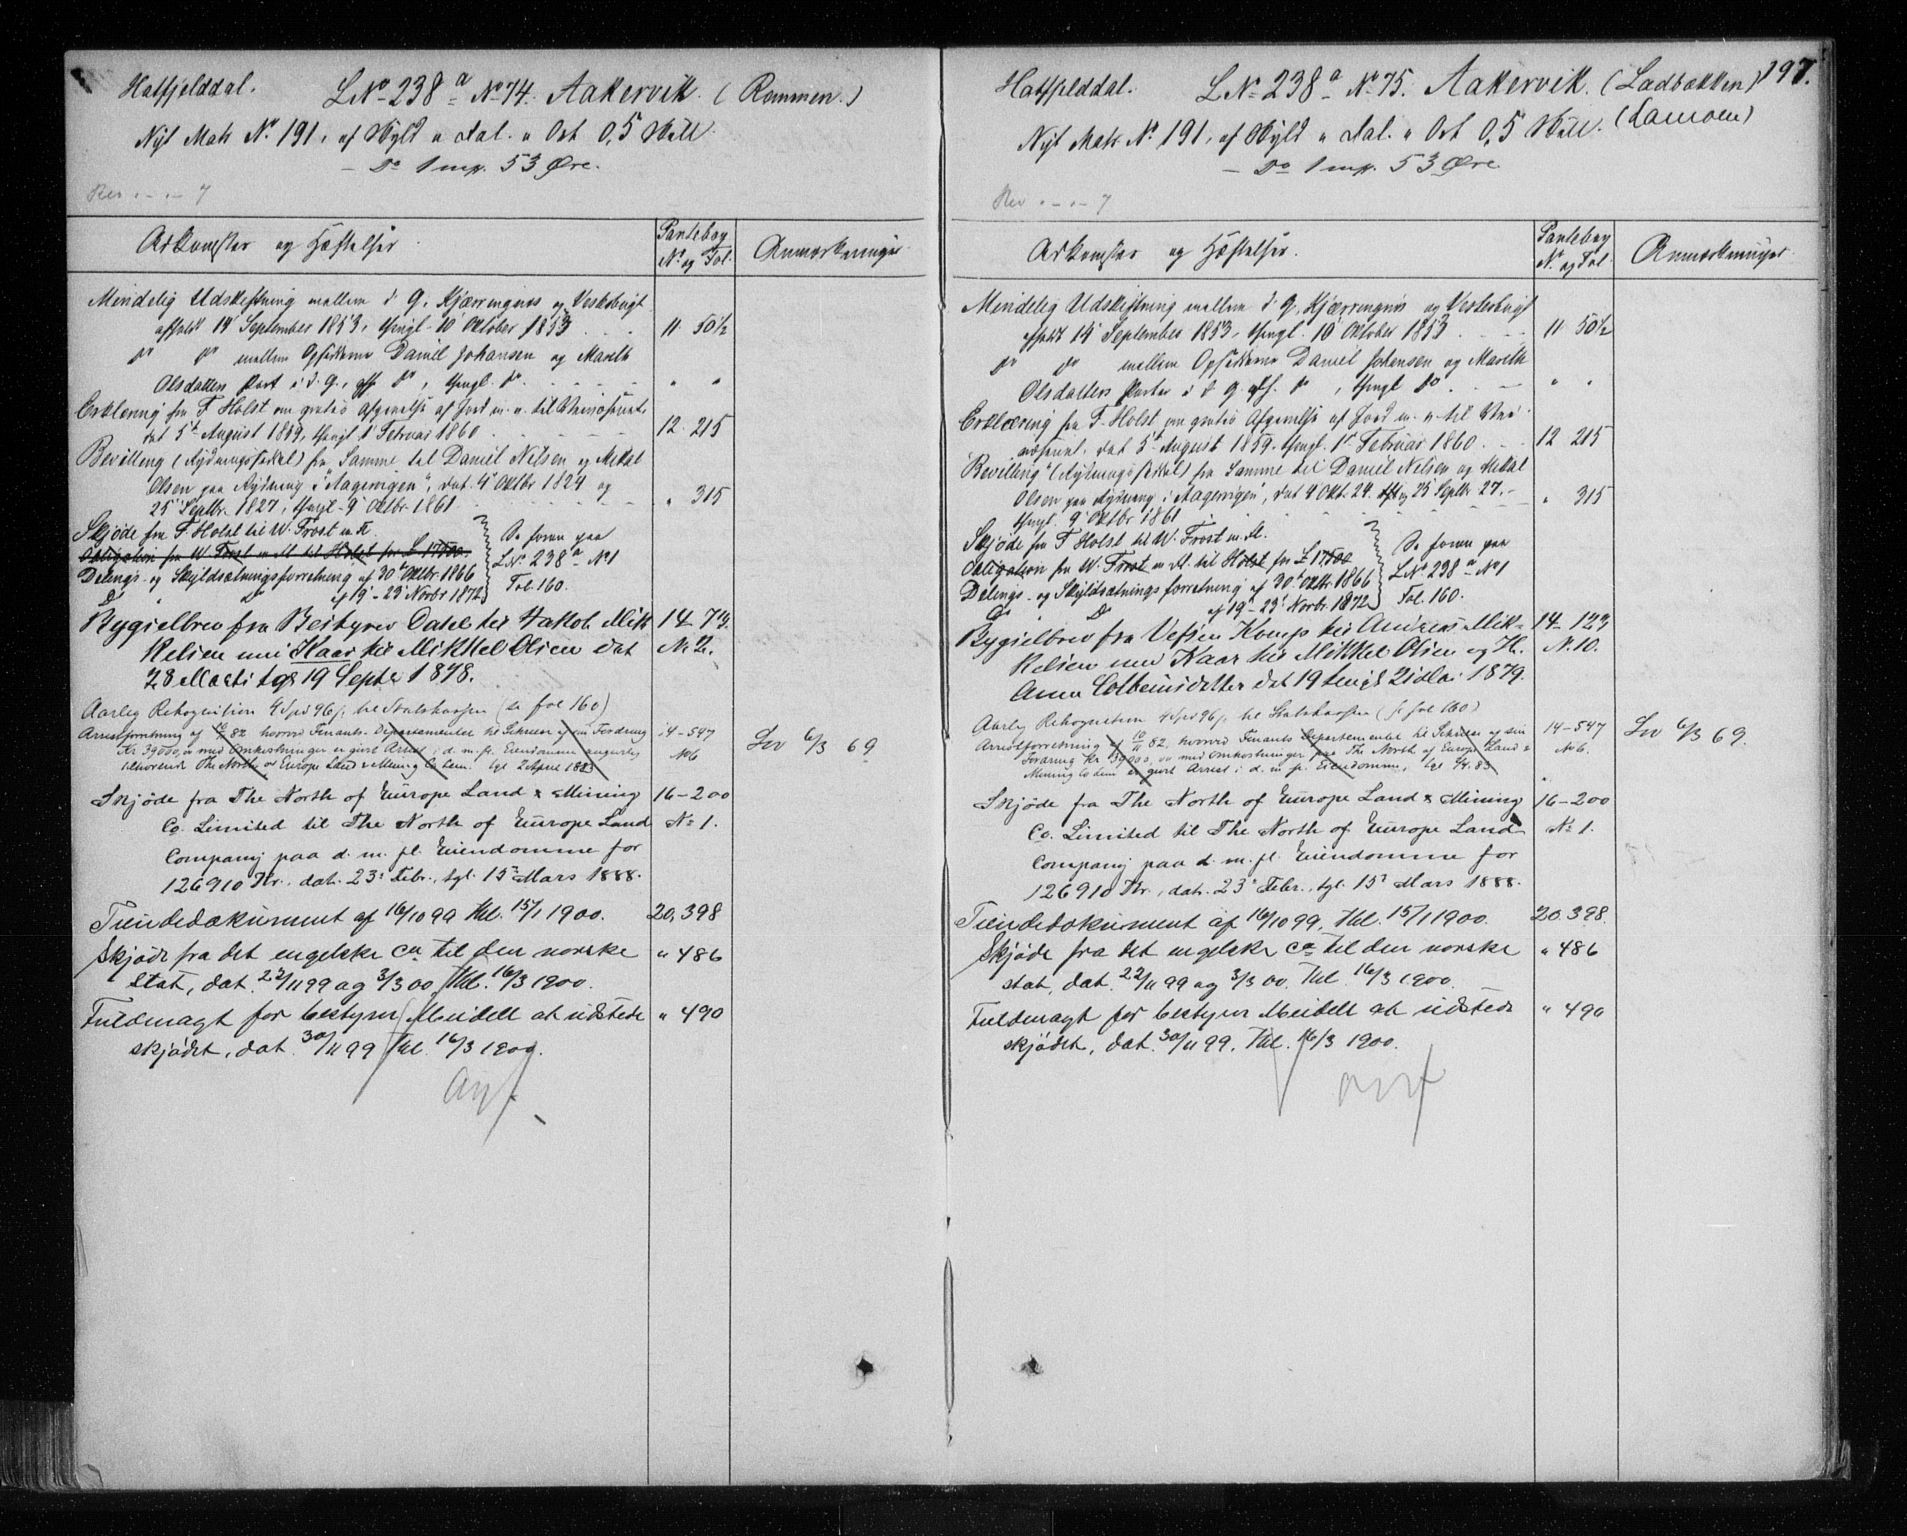 Hatfjelddal. LNo 238a No 74. Aakervik. (Rommen.)
Nyt Matr No 191, af Skyld " Dal. " Ort 0,5 Skill.
- Do 1 mrk. 53 Øre.
Rev . - . - 7
Adkomster og Hæftelser.
Pantebog
No og Fol.
Anmærkninger
Mindelig Udskiftning mellem d. G. Kjærringnes og Vesterbugt
afholdt 14 September 1853, thingl. 10 Oktober 1853
11. 50½
do do mellem Opsidderne Daniel Johansen og Mareth
Olsdatters Part i d. G., aff. do, thingl. do.
" "
Erklæring fra F. Holst om gratis Afgivelse af Jord m. v. til
dat 5te August 1859, thingl. 1 Februar 1860
12. 215
Bevilling (Rydningsseddel) fra Samme til Daniel Nilsen og Mikal
Olsen paa Rydning i "Aagervigen", dat. 4 Oktbr 1824 og
25 Septbr. 1827, thingl. 9 Oktbr. 1861
" 315
Skjøde fra F. Holst til W. Frost m. Fl.
Obligation fra W. Frost m. Fl. til Holst for £ 17500.
Delings- og Skyldsætningsforretning af 30te Oktbr. 1866
Do Do af 19-23 Novbr. 1872
Se foran paa
LNo 238a No 1
Fol. 160.
Bygselbrev fra Bestyrer Dahl til Jakob Mik
kelsen med Kaar til Mikkel Olsen dat
28 Marts tgl 19 Septr 1878.
14-73.
No 2.
Aarlig Rekognition 4 Spd 96 s. til Statskassen (se fol 160)
Arrestforretning af 10/11 82 hvorved Finants-Departementet til Sikkerhed for sin Fordring
Kr. 39000, med Omkostninger er gjort Arrest i d. m. fl. Eiendomme
tilhørende The North of Europe Land & Mining Co Lim. tgl 2 April 1883
14-547
No 6
Lov 6/3 69
Skjøde fra The North of Europe Land & Mining
Co. Limited til The North of Europe Land
Company paa d. m. fl. Eiendomme for
126910 Kr., dat. 23' Febr., tgl. 15' Mars 1888.
16-200
No 1.
Tiendedokument af 16/10 99 thl. 15/1 1900.
20.398
Skjøde fra det engelske Co til den norske
Stat, dat. 22/11 99 og 3/3 00, thl. 16/3 1900.
" 486
Fuldmagt for bestyrer Meidell at udstede
skjødet, dat. 30/11 99 thl. 16/3 1900.
" 490
197.
Hatfjelddal. LNo 238a No 75. Aakervik. (Ladbækken)
(Lamoen)
Nyt Matr No 191, af Skyld " Dal. " Ort 0,5 Skill.
- Do 1 mrk. 53 Øre.
Rev . - . - 7
Adkomster og Hæftelser.
Pantebog
No og Fol.
Anmærkninger
Mindelig Udskiftning mellem d. G. Kjærringnes og Vesterbugt
afholdt 14 September 1853, thingl. 10 Oktober 1853
11 50½
do do mellem Opsidderne Daniel Johansen og Mareth
Olsdatters Parter i d. G. aff. do, thingl. do
" "
Erklæring fra F. Holst om gratis Afgivelse af Jord m. v. til
dat. 5te August 1859. thingl. 1st Februar 1860.
12 215
Bevilling (Rydningsseddel) fra Samme til Daniel Nelsen og Mikal
Olsen paa Rydning i "Aagervigen", dat 4 Okt. 24. og 25 Septbr. 27.-
thingl. 9 Oktbr 1861
" 315
Skjøde fra F. Holst til W. Frost m. fl.
Obligation fra W. Frost m. fl. til Holst for £ 17500
Delings- og Skyldsætningsforretning af 30te Oktbr. 1866
Do Do af 19-23 Novbr. 1872
Se foran paa
LNo 238a No 1
Fol. 160.
Bygselbrev fra Vefsen Komp til Andreas Mik-
kelsen med Kaar til Mikkel Olsen og H.
Anna Colbeinsdatter dat 19 tingl 21 Mai 1879.
14-123
N. 10.
Aarlig Rekognition 4 Spd 96 s. til Statskassen (se fol 160)
Arrestforretning af 10/11 82, hvorved Finants Departementet til Sikkerhed for sin
Fordring Kr. 39000, med Omkostninger The North of Europe Land &
Mining Co Lim er gjort Arrest i d. m. fl. Eiendomme, tgl 2/4. 83
14-547
No 6.
Lov 6/3 69.
Skjøde fra The North of Europe Land & Mining
Co. Limited til The North of Europe Land
Company paa d. m. fl. Eiendomme for
126910 Kr., dat. 23' Febr., tgl. 15' Mars 1888.
16-200
No 1.
Tiendedokument af 16/10 99, thl. 15/1 1900.
20.398.
Skjøde fra det engelske Co til den norske
stat, dat. 22/11 99 og 3/3 00. thl. 16/3 1900.
" 486
Fuldmagt for bestyrer Meidell at udstede
skjødet, dat. 30/11 99, thl. 16/3 1900.
" 490